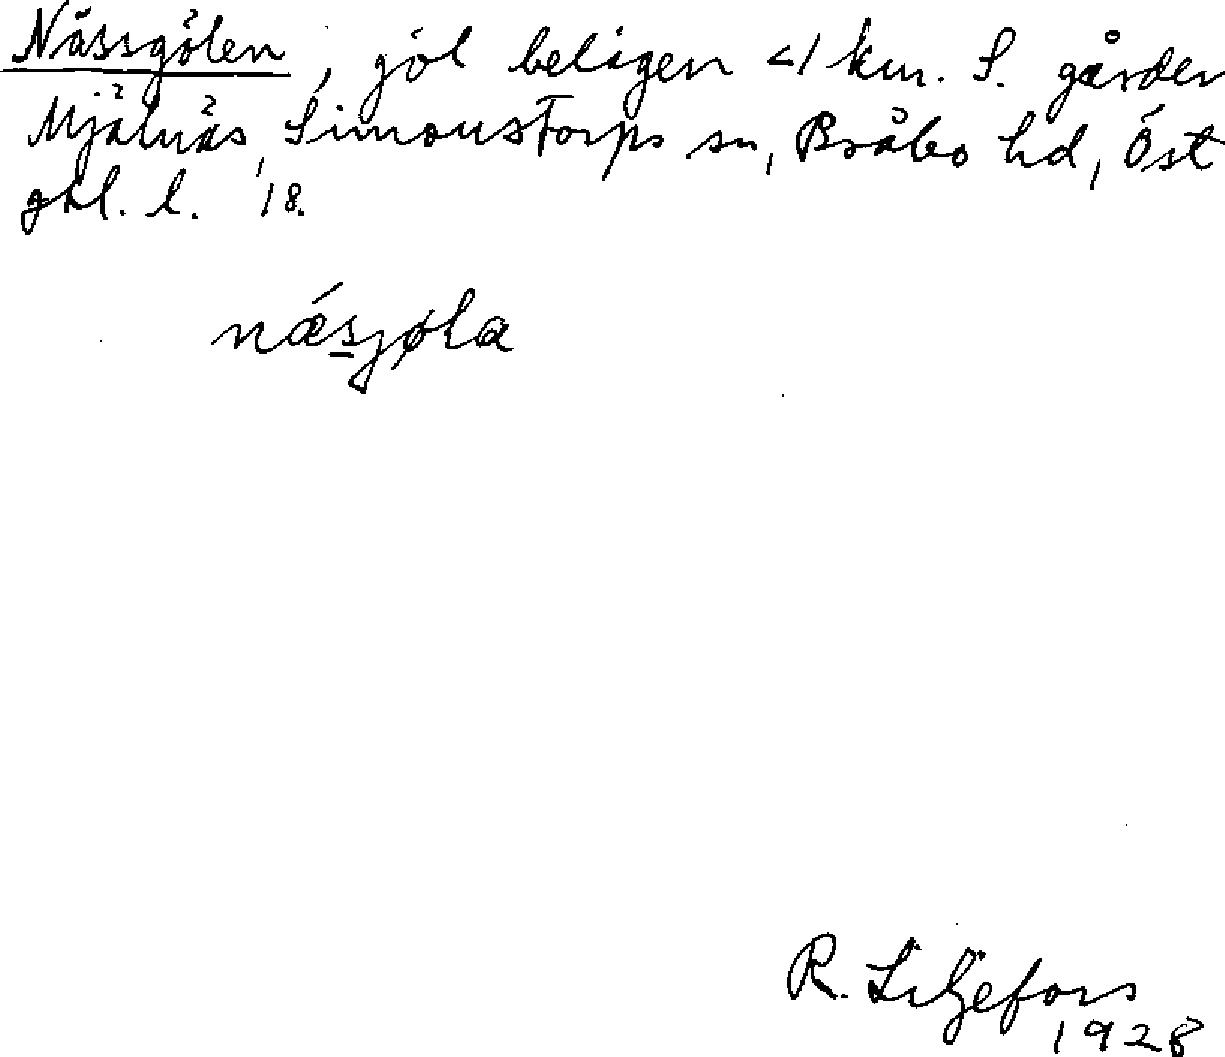 Nässgölen, göl belägen <1 km. S. gården
Mjälnäs, Simonstorps sn, Bråbo hd, Öst
gtl. l. '18.
nǽsjøla
R. Liljefors
1928